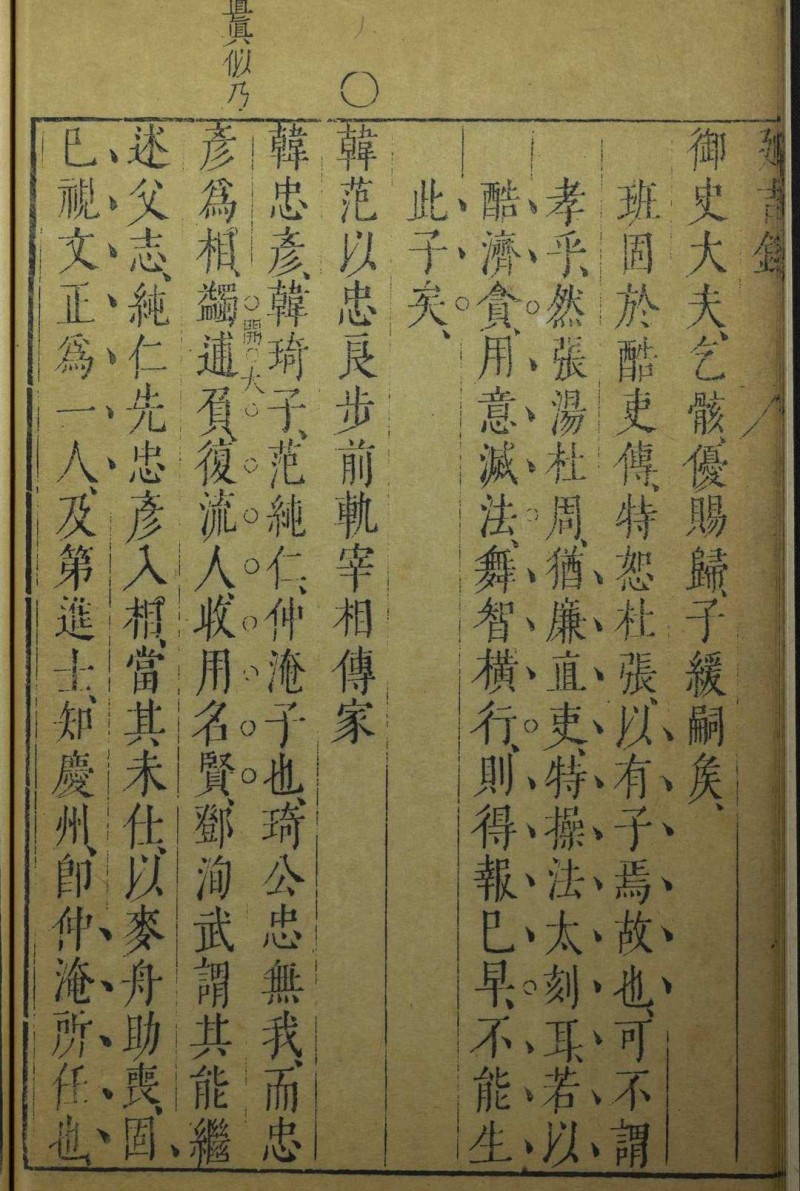 御史大夫、乞骸、優賜歸、子緩嗣矣、
班固於酷吏傳、特恕杜張、以有子焉故也、可不謂
孝乎、然張湯杜周、猶廉直吏、特操法太刻耳、若以
酷濟貪、用意滅法、舞智橫行、則得報巳早、不能生
此子矣、
○
韓范以忠良步前軌宰相傳家
韓忠彥、韓琦子、范純仁、仲淹子也、琦公忠無我、而忠
開大
彥爲相、蠲逋負、復流人、收用名賢、鄧洵武謂其能繼
眞似乃
述父志、純仁先忠彥入相、當其未仕、以麥舟助喪、固
巳視文正爲一人、及第進士、知慶州、卽仲淹所任也、